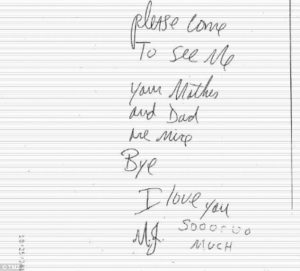 please come
To see me
your Mother
and Dad
are nice
Bye
I love you
M.J. Soooooo
MUCH